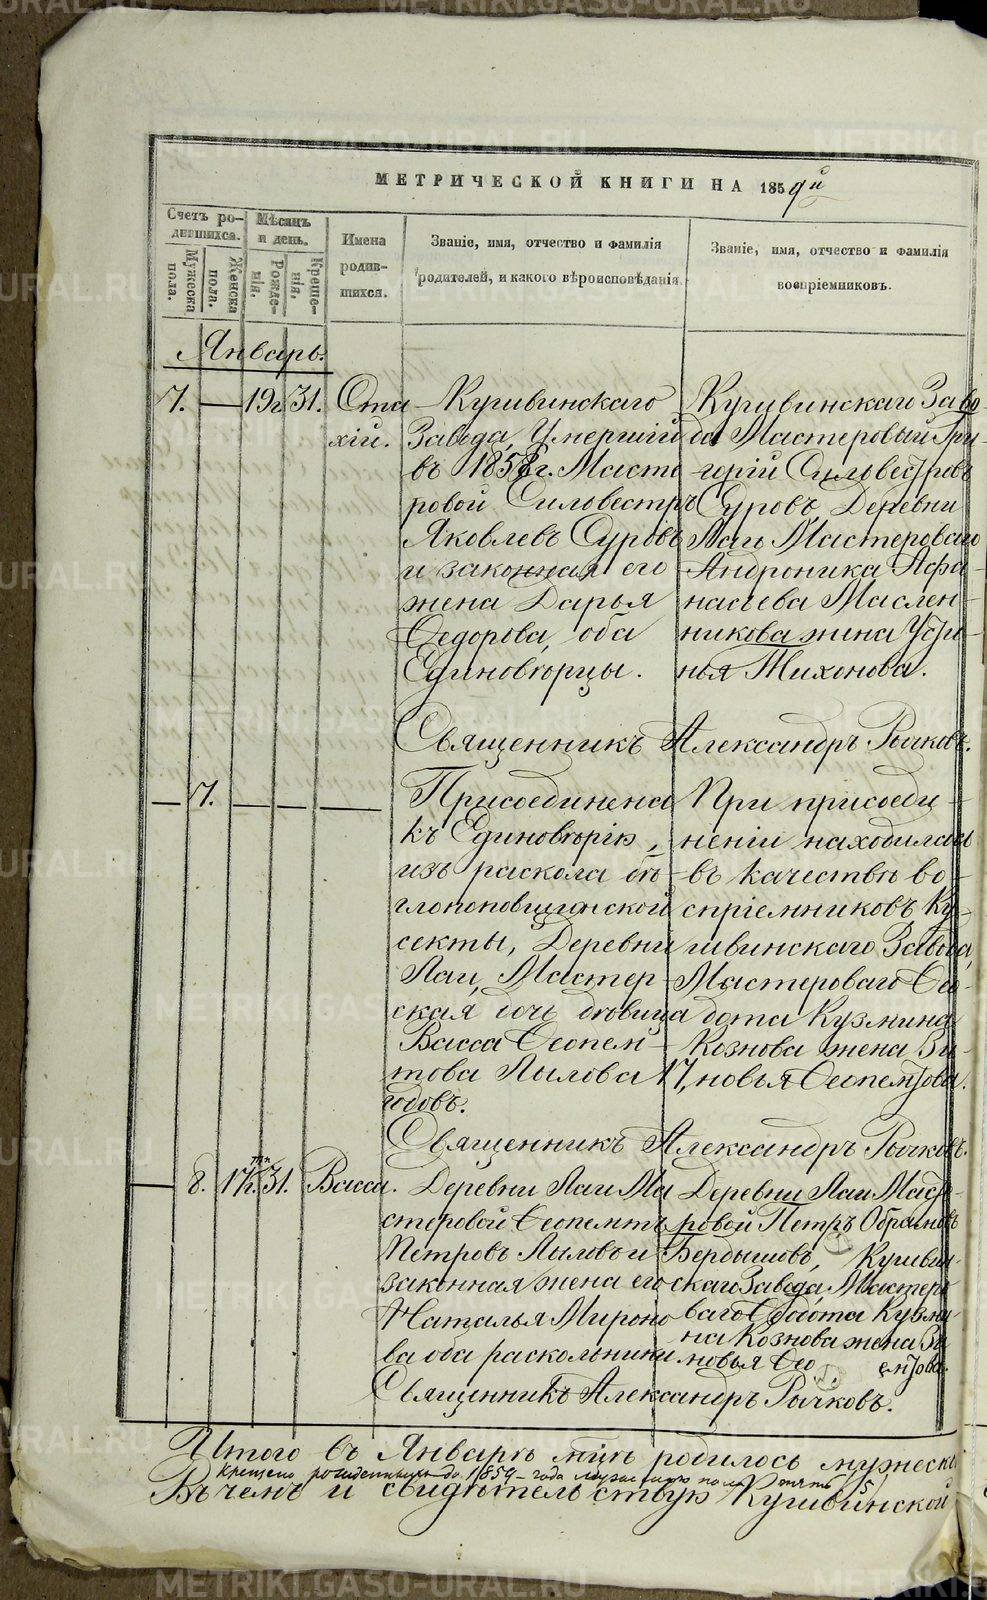 МЕТРИЧЕСКОЙ КНИГИ НА 1859й
Счетъ ро-
дившихся.
Мѣсяцъ
и день.
Мужеска
пола.
Женска
пола.
Рожде-
нія.
Креще-
нія.
Имена
родив-
шихся.
Званіе, имя, отчество и фамилія
родителей, и какого вѣроисповѣданія.
Званіе, имя, отчество и фамилія
воспріемниковъ.
Январь.
7. — 19 31. Ста-
хій.
Кушвинскаго
Завода, Умершій
въ 1858 г. Масте
ровой Силовестръ
Яковлевъ Суровъ
и законная его
жена Дарья
Ѳедорова, оба
Единовѣрцы.
Кушвинскаго Заво-
да Мастеровый Гри-
горій Силовестровъ
Суровъ, Деревни
Лаи Мастероваго
Андроника Афа-
насьева Маслен-
никова жена Усти-
нья Тихонова.
Священникъ Александръ Рычковъ.
— 7. — — —
Присоединена
къ Единовѣрію,
изъ раскола бѣ-
глопоповщинской
секты, Деревни
Лаи, Мастер-
ская дочь дѣвица
Васса Ѳеопем-
това Лылова 17,
годовъ.
При присоеди-
неніи находилась
въ качествѣ во-
спріемниковъ, Ку-
швинскаго Завода,
Мастероваго Ѳео-
дота Кузмина
Кознова жена Зи-
новья Ѳеопемтова.
Священникъ Александръ Рычковъ.
— 8. 17 31. Васса.
Деревни Лаи Ма
стеровой Ѳеопемтъ
Петровъ Лыловъ и
законная жена его
Наталья Мироно
ва оба раскольники
Деревни Лаи Масте-
ровой Петръ Обрамовъ
Бердышовъ, Кушвин-
скаго Завода, Мастеро
ваго Ѳеодота Кузми-
на Кознова жена Зи-
новья Ѳеопемтова.
Священникъ Александръ Рычковъ.
Итого въ Январѣ м̃цѣ родилось мужеска
Крещено рожденныхъ до 1859 года мужеска пола пять 5/
Въ чемъ и свидѣтельствую Кушвинской
METRIKI.GASO-URAL.RU